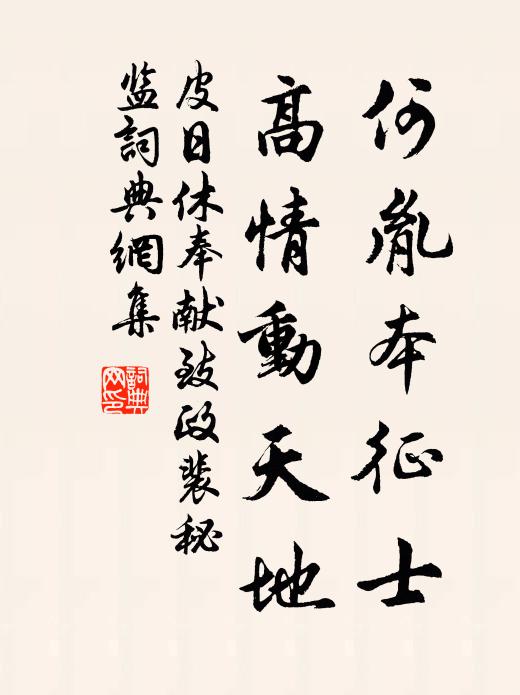 何胤本征士
高情動天地
皮日休奉献致政裴秘
监詞典網集
詞典
网印